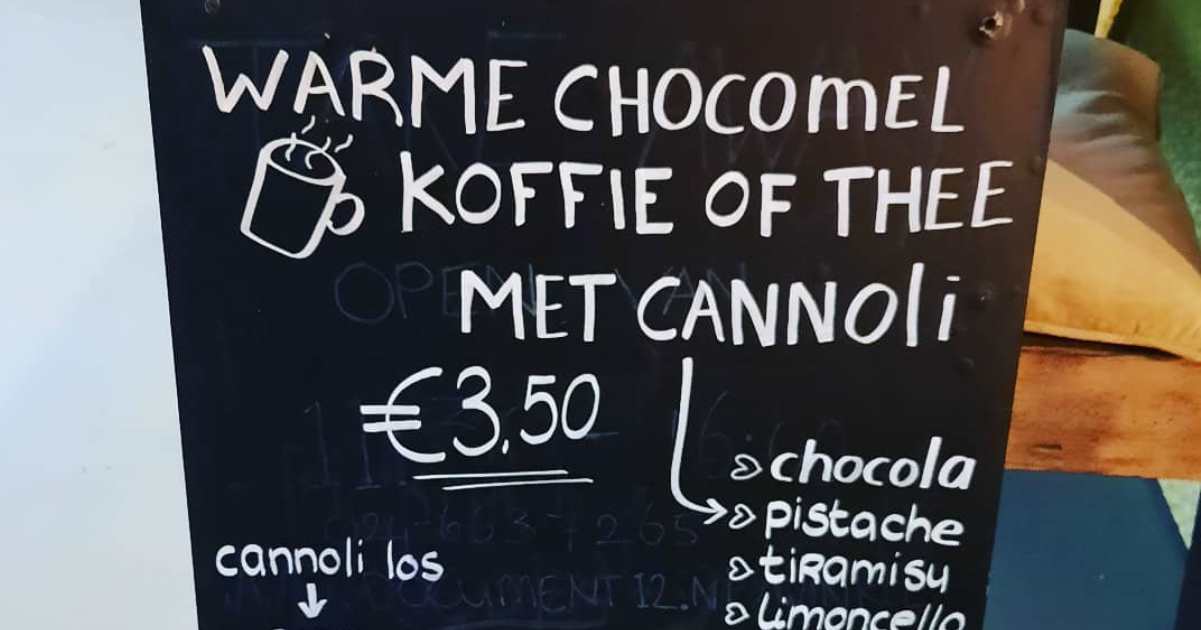 WARME CHOCOMEL
KOFFIE OF THEE
MET CANNOLI
€3,50
chocola
pistache
tiramisu
limoncello
cannoli los
OPEN VAN
024-6637265